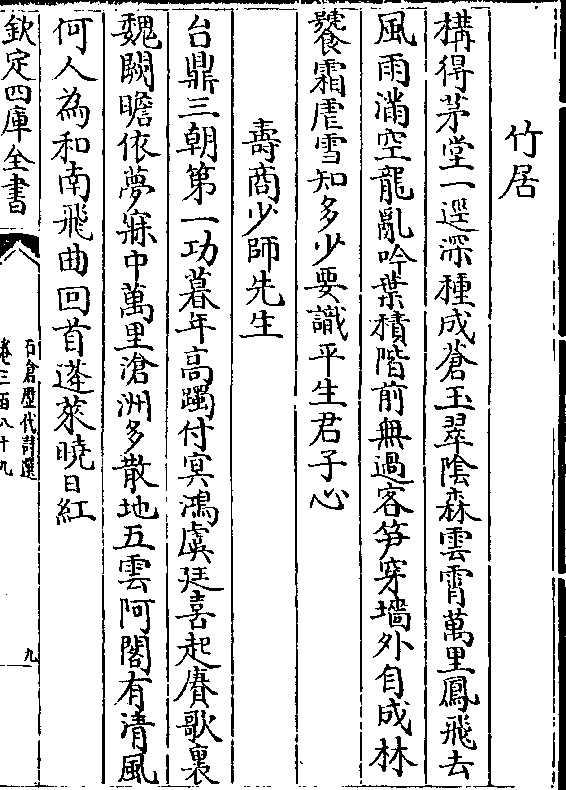 竹居
構得茅堂一逕深種成蒼玉翠陰森雲霄萬里鳳飛去
風雨滿空龍亂吟葉積階前無過客笋穿墻外自成林
饕霜虐雪知多少要識平生君子心
壽商少師先生
台鼎三朝第一功暮年高躅付冥鴻虞廷喜起賡歌裏
魏闕瞻依夢寐中萬里滄洲多散地五雲阿閣有清風
何人為和南飛曲回首蓬萊曉日紅
欽定四庫全書
石倉歷代詩選
卷三百八十九
九